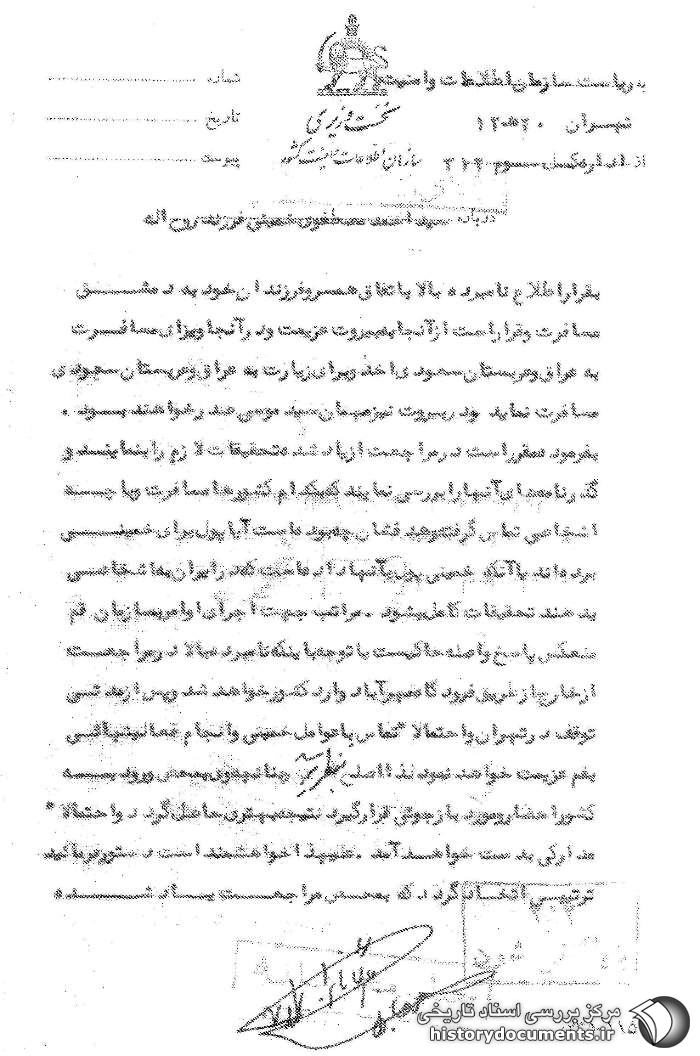 به ریاست سازمان اطلاعات و امنیت
تهران ۱۲ه۲۰
از اداره کل سوم ۳۱۲
شماره
تاریخ
پیوست
نخست وزیری
سازمان اطلاعات و امنیت کشور
درباره سید احمد مصطفوی خمینی فرزند روح اله
بقرار اطلاع نامبرده بالا باتفاق همسر و فرزندان خود به دمشق
مسافرت و قرار است از آنجا به بیروت عزیمت و در آنجا ویزای مسافرت
به عراق و عربستان سعودی اخذ و برای زیارت به عراق و عربستان سعودی
مسافرت نماید و در بیروت نیز میهمان سید موسی صدر خواهند بود .
بفرموده مقرر است در مراجعت از یاد شده تحقیقات لازم را بنمایند و
گذرنامه های آنها را بررسی نمایند که بکدام کشورها مسافرت و با چه
اشخاصی تماس گرفته و هدفشان چه بوده است آیا پول برای خمینی
برده اند یا آنکه خمینی پول بآنها داده است که در ایران به اشخاصی
بدهند تحقیقات کامل بشود . مراتب جهت اجرای اوامر بسازمان قم
منعکس پاسخ واصله حاکیست با توجه باینکه نامبرده بالا در مراجعت
از خارج از طریق فرودگاه مهرآباد وارد کشور خواهد شد و پس از مدتی
توقف در تهران و احتمالا" تماس با عوامل خمینی و انجام فعالیتهائی
بقم عزیمت خواهند نمود لذا اصلح بنظر میرسد چنانچه وی بمحض ورود به
کشور احضار و مورد بازجوئی قرار گیرد نتیجه بهتری حاصل گردد و احتمالا"
مدارکی بدست خواهد آمد . علیهذا خواهشمند است دستور فرمائید
ترتیبی اتخاذ گردد که بمحض مراجعت یاد شده
مرکز بررسی اسناد تاریخی
historydocuments.ir